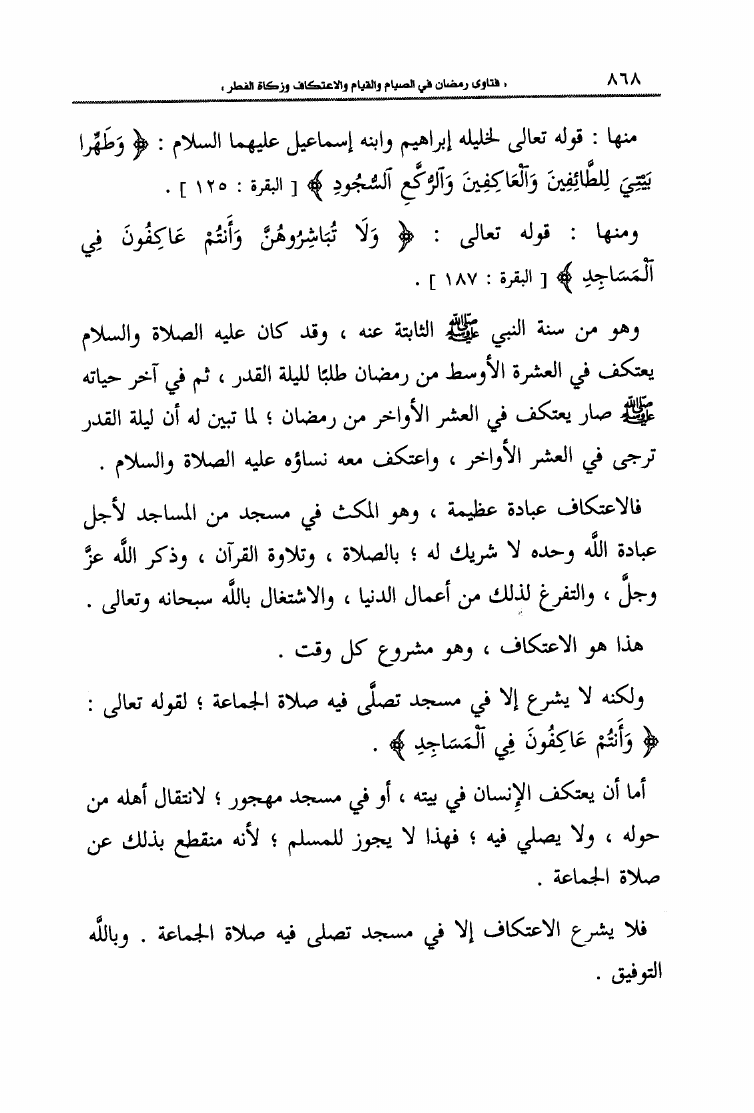 ٨٦٨ « فتاوى رمضان في الصيام والقيام والاعتكاف وزكاة الفطر »
منها : قوله تعالى لخليله إبراهيم وابنه إسماعيل عليهما السلام : ﴿ وَطَهِّرا
بَيْتِيَ لِلطَّائِفِينَ وَٱلْعَاكِفِينَ وَٱلرُّكَّعِ ٱلسُّجُودِ ﴾ [ البقرة : ١٢٥ ] .
ومنها : قوله تعالى : ﴿ وَلَا تُبَاشِرُوهُنَّ وَأَنتُمْ عَاكِفُونَ فِي
ٱلْمَسَاجِدِ ﴾ [ البقرة : ١٨٧ ] .
وهو من سنة النبي ﷺ الثابتة عنه ، وقد كان عليه الصلاة والسلام
يعتكف في العشرة الأوسط من رمضان طلبًا لليلة القدر ، ثم في آخر حياته
ﷺ صار يعتكف في العشر الأواخر من رمضان ؛ لما تبين له أن ليلة القدر
ترجى في العشر الأواخر ، واعتكف معه نساؤه عليه الصلاة والسلام .
فالاعتكاف عبادة عظيمة ، وهو المكث في مسجد من المساجد لأجل
عبادة اللَّه وحده لا شريك له ؛ بالصلاة ، وتلاوة القرآن ، وذكر اللَّه عزَّ
وجلَّ ، والتفرغ لذلك من أعمال الدنيا ، والاشتغال باللَّه سبحانه وتعالى .
هذا هو الاعتكاف ، وهو مشروع كل وقت .
ولكنه لا يشرع إلا في مسجد تصلَّى فيه صلاة الجماعة ؛ لقوله تعالى :
﴿ وَأَنتُمْ عَاكِفُونَ فِي ٱلْمَسَاجِدِ ﴾ .
أما أن يعتكف الإنسان في بيته ، أو في مسجد مهجور ؛ لانتقال أهله من
حوله ، ولا يصلي فيه ؛ فهذا لا يجوز للمسلم ؛ لأنه منقطع بذلك عن
صلاة الجماعة .
فلا يشرع الاعتكاف إلا في مسجد تصلى فيه صلاة الجماعة . وباللَّه
التوفيق .